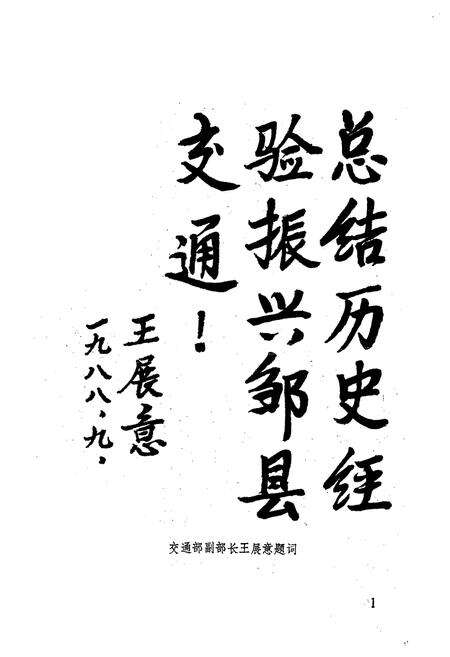 总结历史经
验振兴邹县
交通！
王展意
一九八八．九．
交通部副部长王展意题词
1